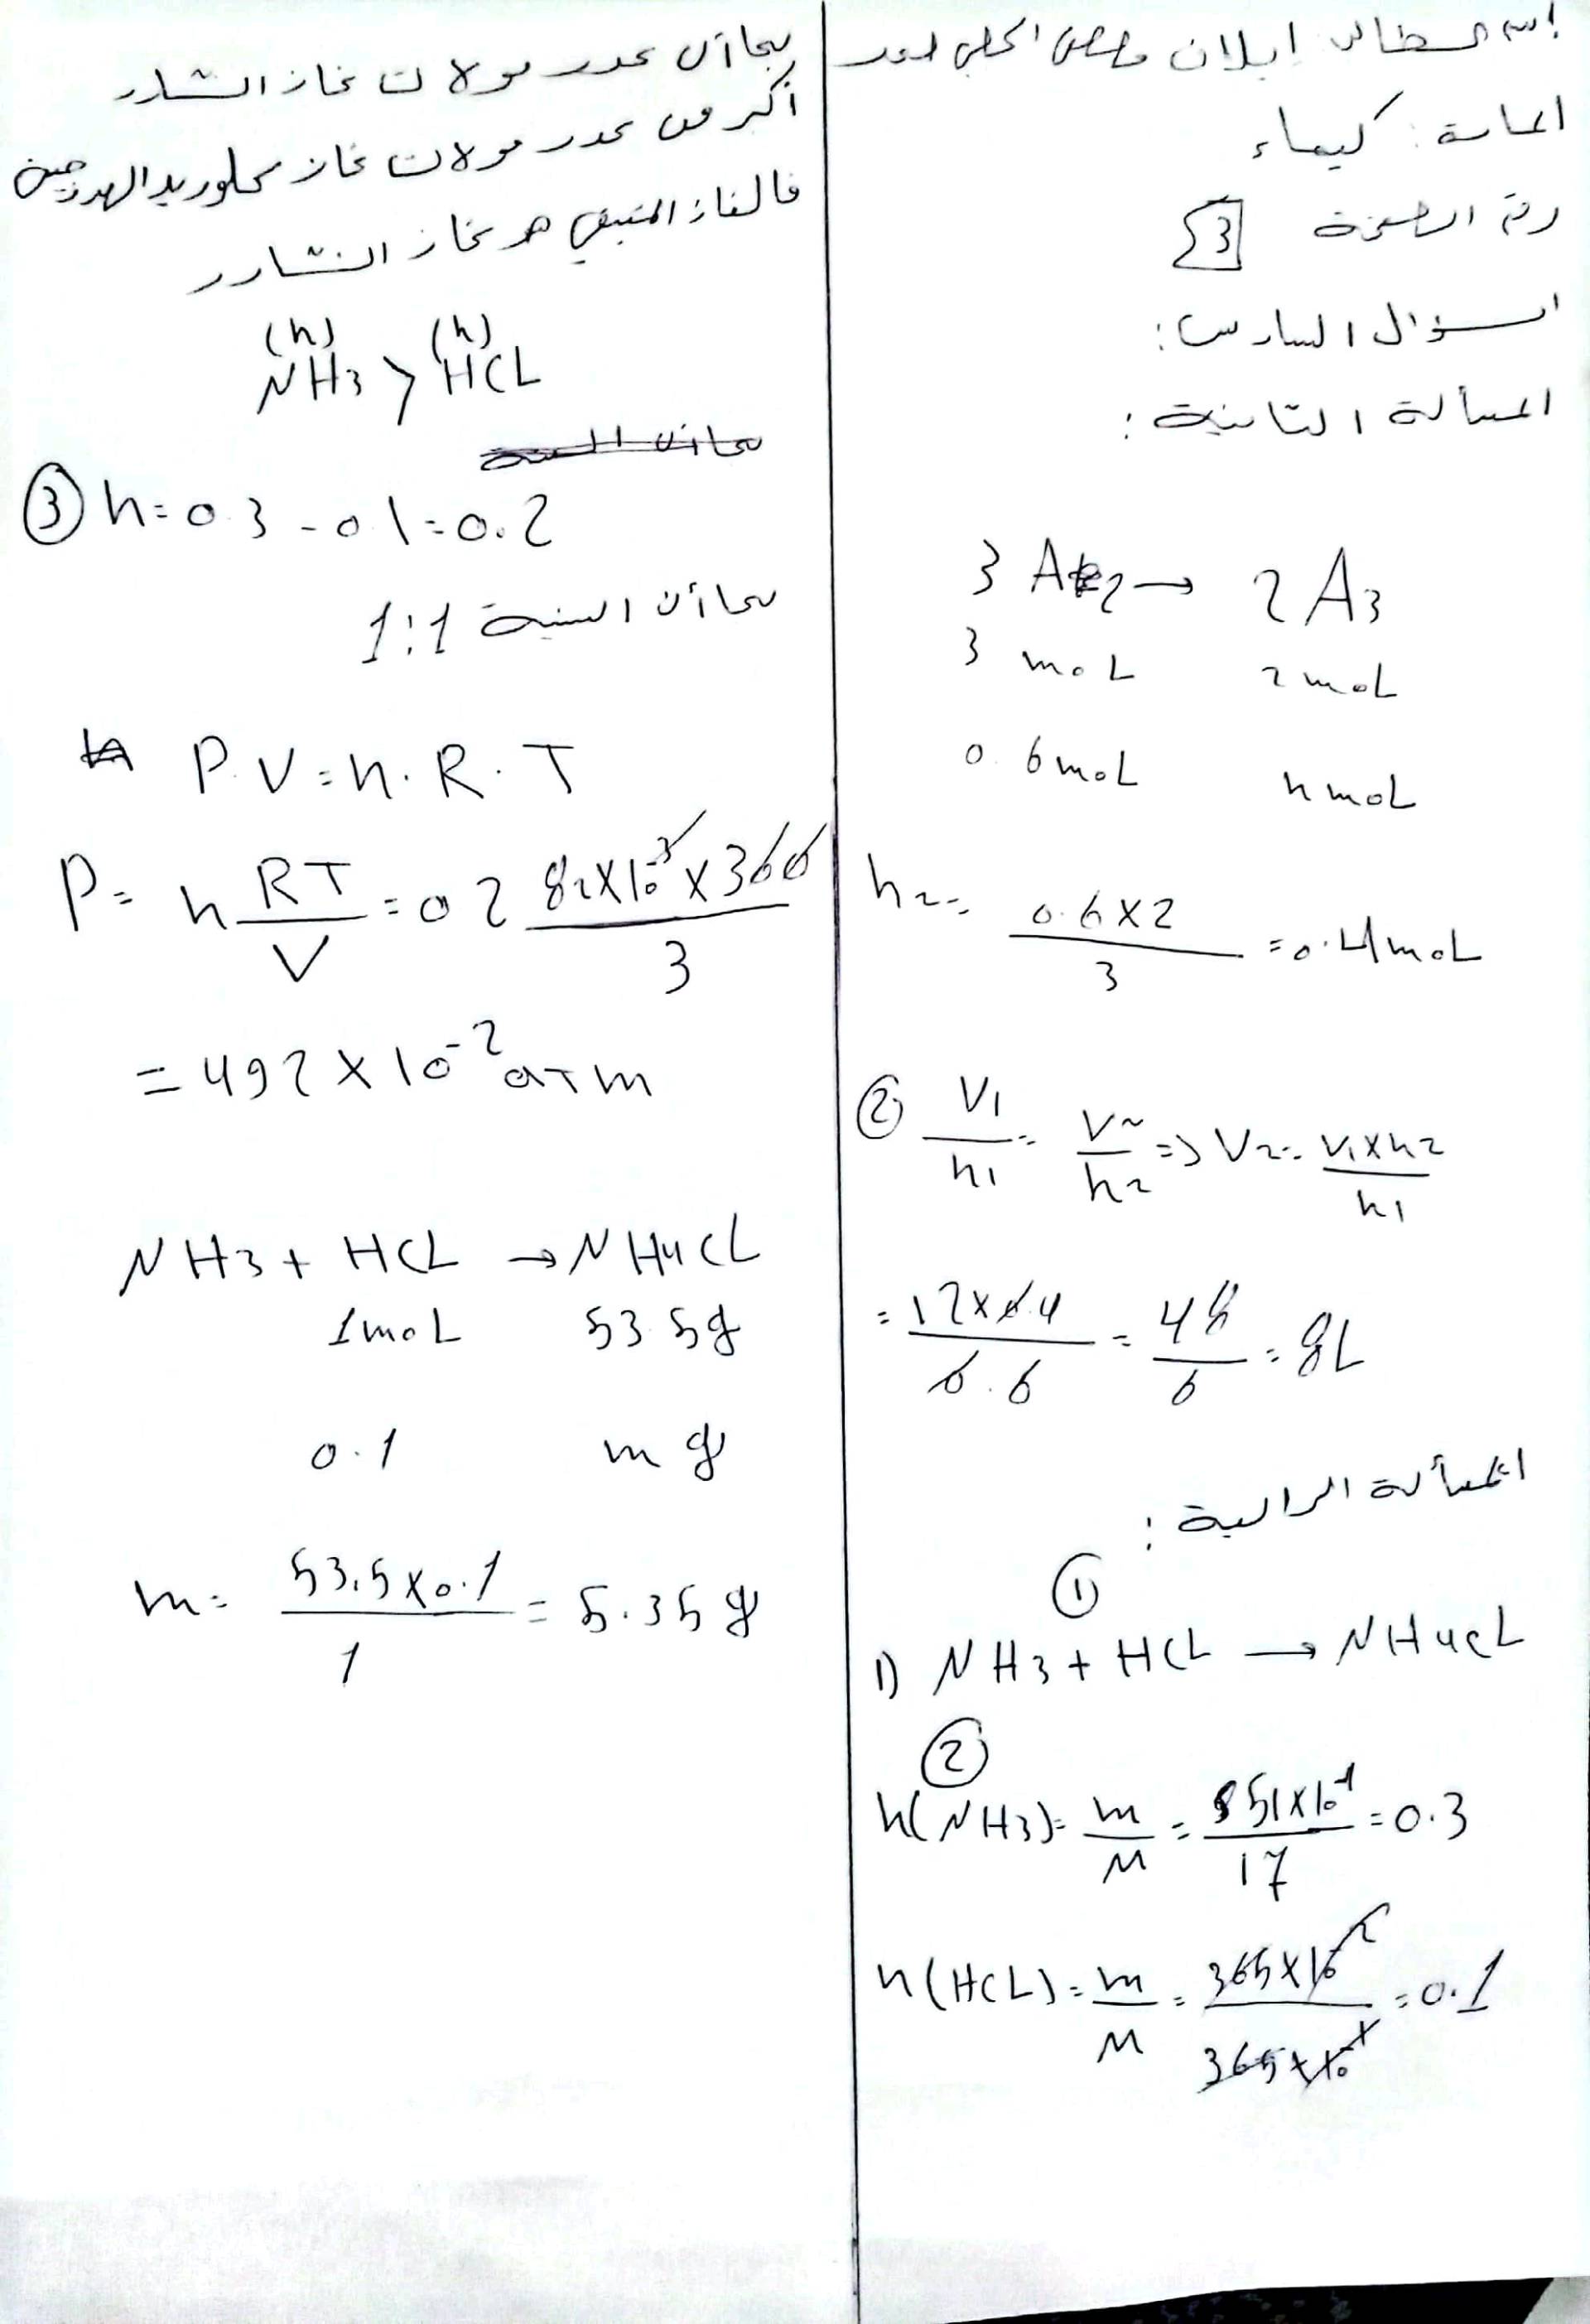 إسم الطالب إيلان
المادة: كيمياء
رقم الصفحة 3
السؤال السادس:
المسألة الثانية:
3 A2 → 2 A3
3 moL 2 moL
0.6 moL n moL
n2 = 0.6 X 2 / 3 = 0.4 moL
② V1 / n1 = V2 / n2 => V2 = V1 X n2 / n1
= 12 X 0.4 / 0.6 = 48 / 6 = 8L
المسألة الرابعة:
①
1) NH3 + HCL → NH4CL
②
n(NH3) = m / M = 51X10-1 / 17 = 0.3
n(HCL) = m / M = 365X10-2 / 365X10-1 = 0.1
بما أن عدد مولات غاز النشادر
أكبر من عدد مولات غاز كلوريد الهدرجين
فالغاز المتبقي هو غاز النشادر
(n) (n)
NH3 > HCL
③ n = 0.3 - 0.1 = 0.2
بما أن النسبة 1:1
P.V = n.R.T
P = n RT / V = 0.2 82X10-3 X 300 / 3
= 492 X 10-2 atm
NH3 + HCL → NH4CL
1moL 53.5g
0.1 m g
m = 53.5 X 0.1 / 1 = 5.35 g